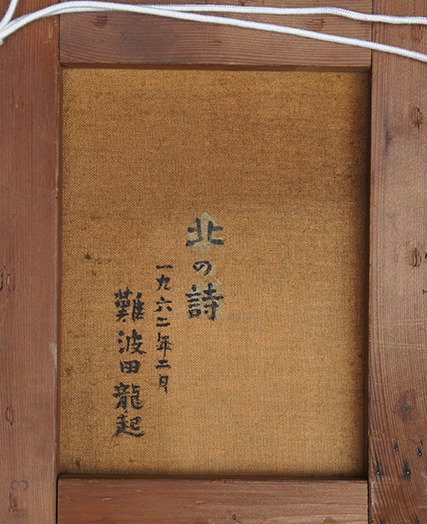 北の詩
一九六二年二月
難波田龍起